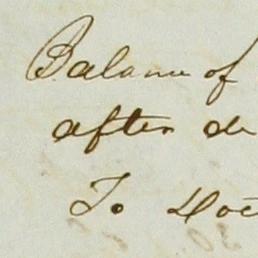 Balance of
after de
To Doc